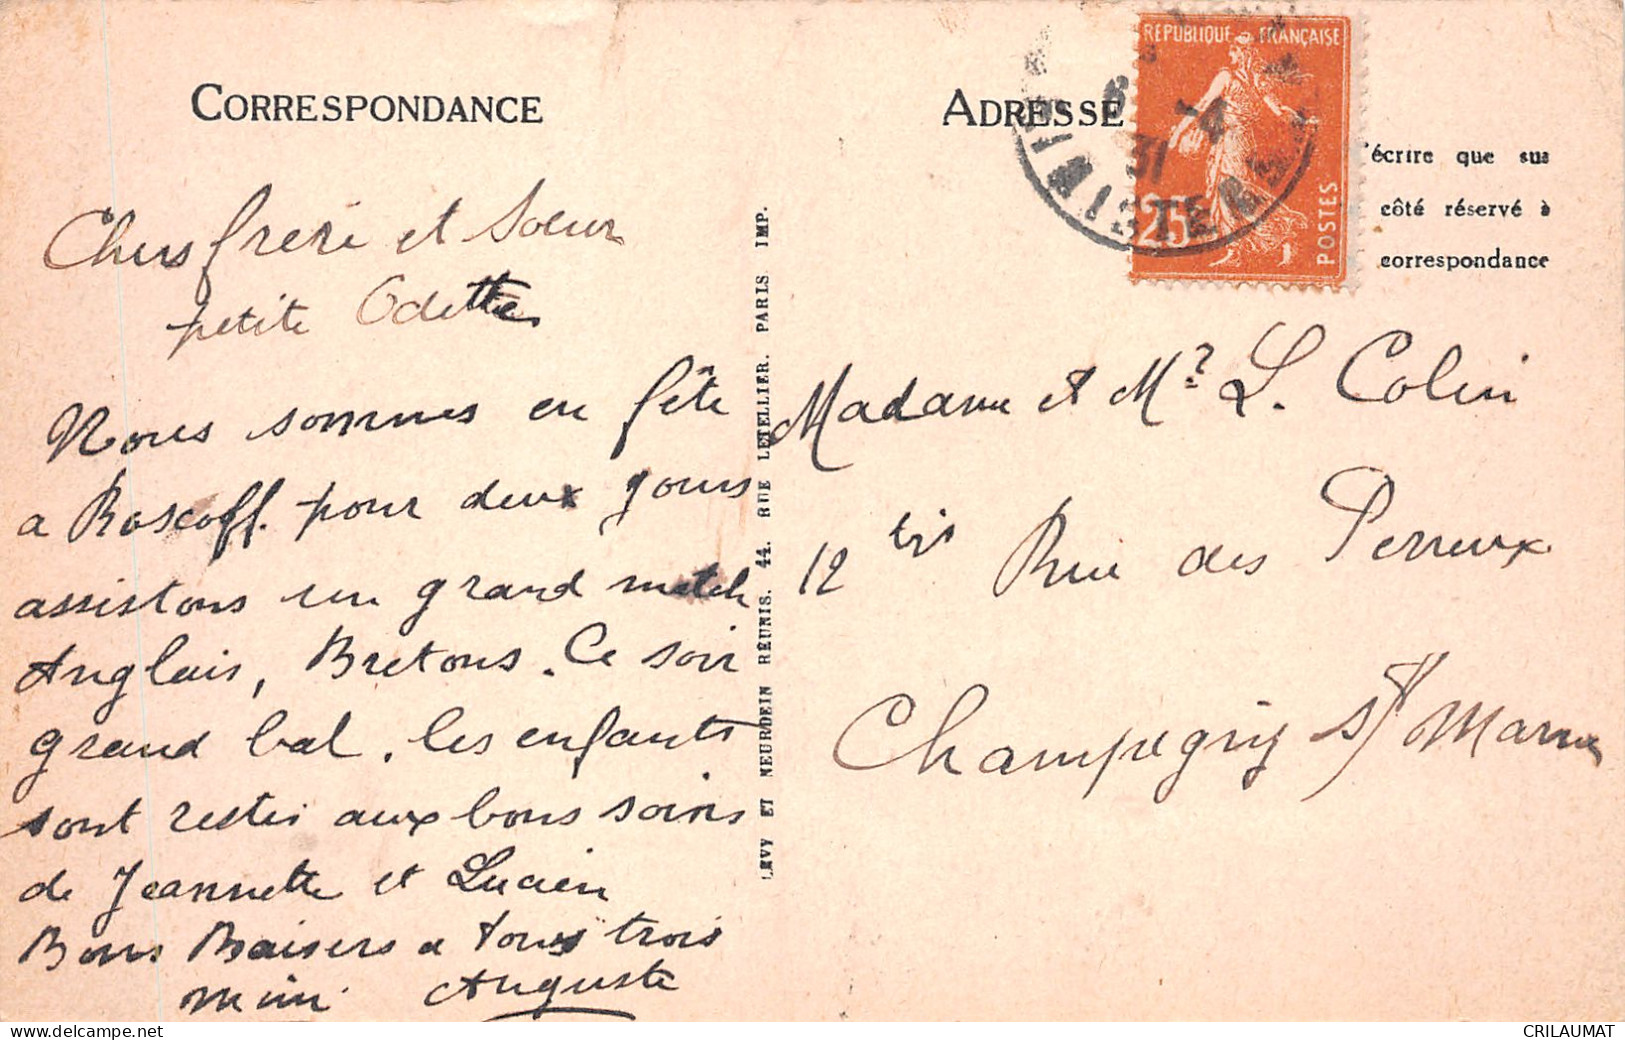 CORRESPONDANCE
Chers frère et Soeur
petite Odette
Nous sommes en fête
a Roscoff. pour deux jours
assistons un grand match
Anglais, Bretons. Ce soir
grand bal. les enfants
sont restés aux bons soins
de Jeannette et Lucien
Bons Baisers a tous trois
mimi. Auguste
LEVY ET NEURDEIN RÉUNIS. 44. RUE LETELLIER. PARIS IMP.
ADRESSE
REPUBLIQUE FRANÇAISE
25
POSTES
6 -4
31
FINISTERE
'écrire que sur
côté réservé à
correspondance
Madame et Mr L. Colin
12 bis Rue des Perreux
Champigny s/ Marne
CRILAUMAT